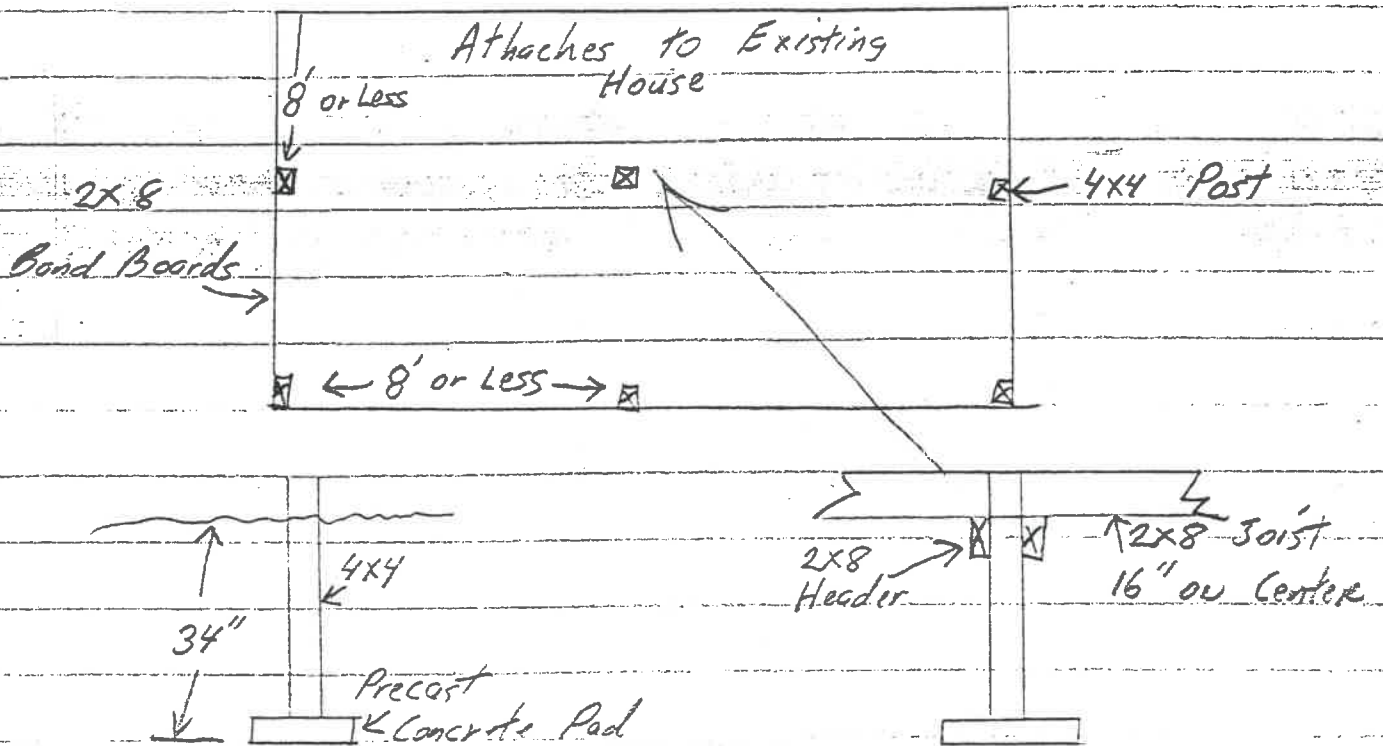 Athaches to Existing
House
8' or Less
2x8
4x4 Post
Bond Boards
8' or Less
4x4
34"
Precast
Concrete Pad
2x8
Header
2x8 Joist
16" on Center